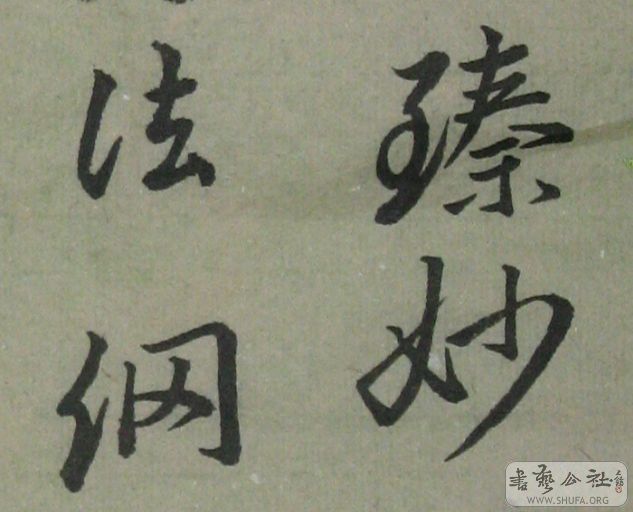 臻妙
法網
書藝公社
WWW.SHUFA.ORG